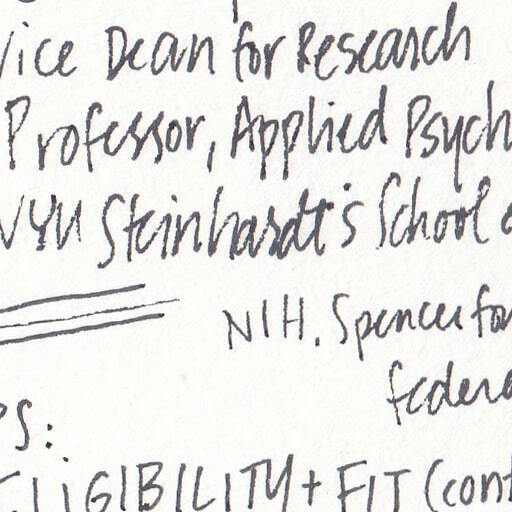 Vice Dean for Research
Professor, Applied Psych
NYU Steinhardt's School
NIH. Spencer
federa
PS:
ELIGIBILITY + FIT (cont